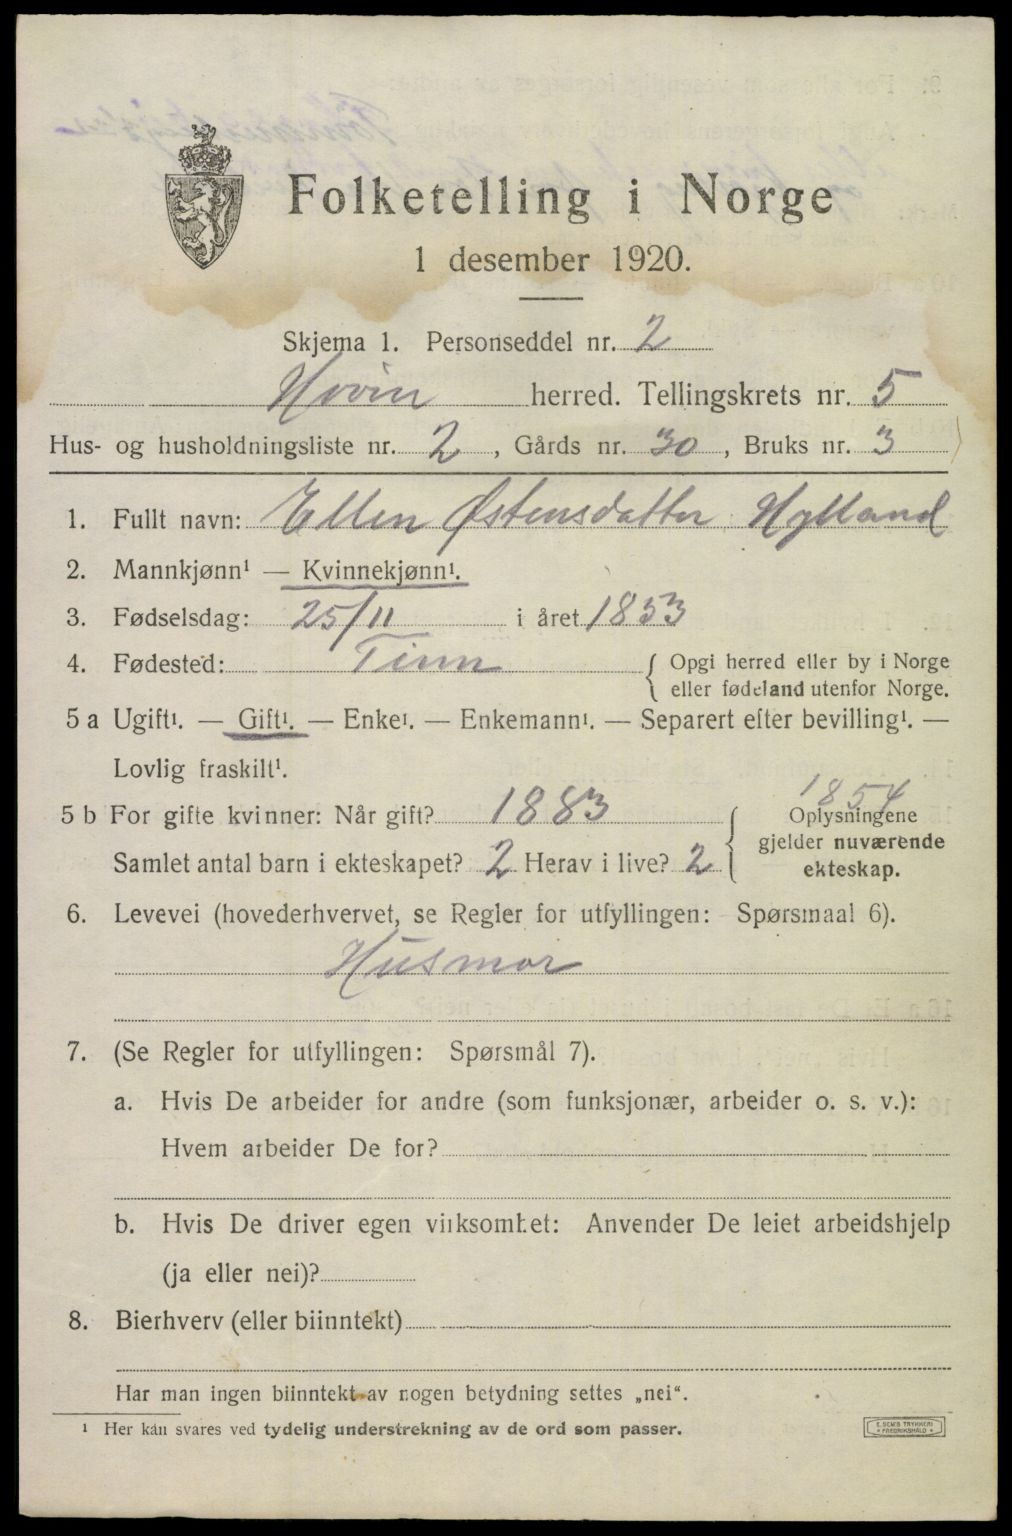 Folketelling i Norge
1 desember 1920.
Skjema 1. Personseddel nr. 2
Hovin herred. Tellingskrets nr. 5
Hus- og husholdningsliste nr. 2, Gårds nr. 30, Bruks nr. 3
1. Fullt navn: Ellen Østensdatter Hylland
2. Mannkjønn¹ — Kvinnekjønn¹.
3. Fødselsdag: 25/11 i året 1853
4. Fødested: Tinn { Opgi herred eller by i Norge
eller fødeland utenfor Norge.
5 a Ugift¹. — Gift¹. — Enke¹. — Enkemann¹. — Separert efter bevilling¹. —
Lovlig fraskilt¹.
1854
5 b For gifte kvinner: Når gift? 1883 { Oplysningene
gjelder nuværende
Samlet antal barn i ekteskapet? 2 Herav i live? 2
ekteskap.
6. Levevei (hovederhvervet, se Regler for utfyllingen: Spørsmaal 6).
Husmor
7. (Se Regler for utfyllingen: Spørsmål 7).
a. Hvis De arbeider for andre (som funksjonær, arbeider o. s. v.):
Hvem arbeider De for?
b. Hvis De driver egen virksomhet: Anvender De leiet arbeidshjelp
(ja eller nei)?
8. Bierhverv (eller biinntekt)
Har man ingen biinntekt av nogen betydning settes „nei“.
¹ Her kan svares ved tydelig understrekning av de ord som passer.
E. SEM'S TRYKKERI
• FREDRIKSHALD •